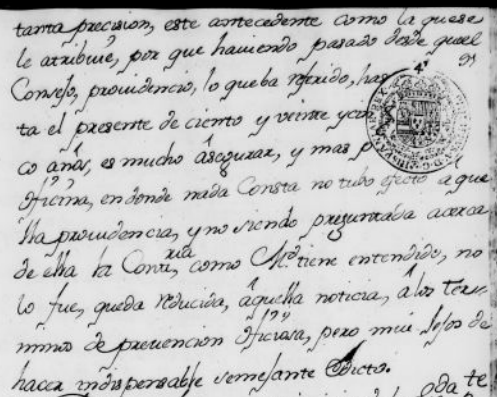 tanta precision, este antecedente como la que se
le atribuie, por que haviendo pasado desde que el
Consejo, providenció, lo que ba referido, has
ta el presente de ciento y veinte y cin
co años, es mucho asegurar, y mas p
oficina, en donde nada Consta no tubo efecto aque
lla providencia, y no siendo preguntada acerca
de ella la Contaria, como M.d tiene entendido, no
lo fue, queda reducida, aquella noticia, a los ter-
minos de prevencion oficiosa, pero mui lejos de
hacer indispensable semejante Edicto.